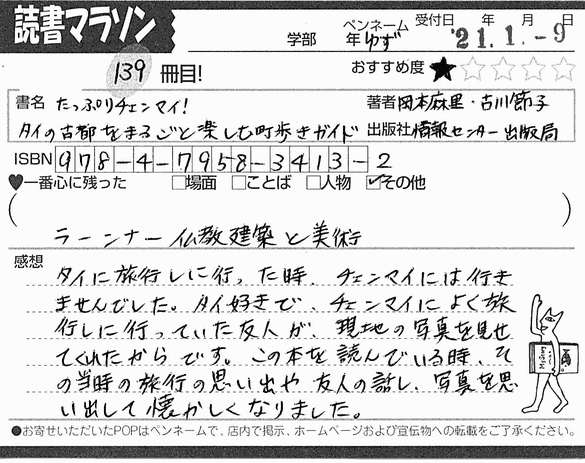 読書マラソン
学部 年 ペンネーム ゆず 受付日 年 月 日
'21.1.-9
139 冊目! おすすめ度 ★☆☆☆☆
書名 たっぷりチェンマイ! 著者 岡本麻里・古川節子
タイの古都をまるごと楽しむ町歩きガイド 出版社 情報センター出版局
ISBN 978-4-7958-3413-2
♥一番心に残った □場面 □ことば □人物 ☑その他
(ラーンナー仏教建築と美術)
感想
タイに旅行しに行った時、チェンマイには行き
ませんでした。タイ好きで、チェンマイによく旅
行しに行っていた友人が、現地の写真を見せ
てくれたからです。この本を読んでいる時、そ
の当時の旅行の思い出や友人の話し、写真を思
い出して懐かしくなりました。
●お寄せいただいたPOPはペンネームで、店内で掲示、ホームページおよび宣伝物への転載をご了承ください。